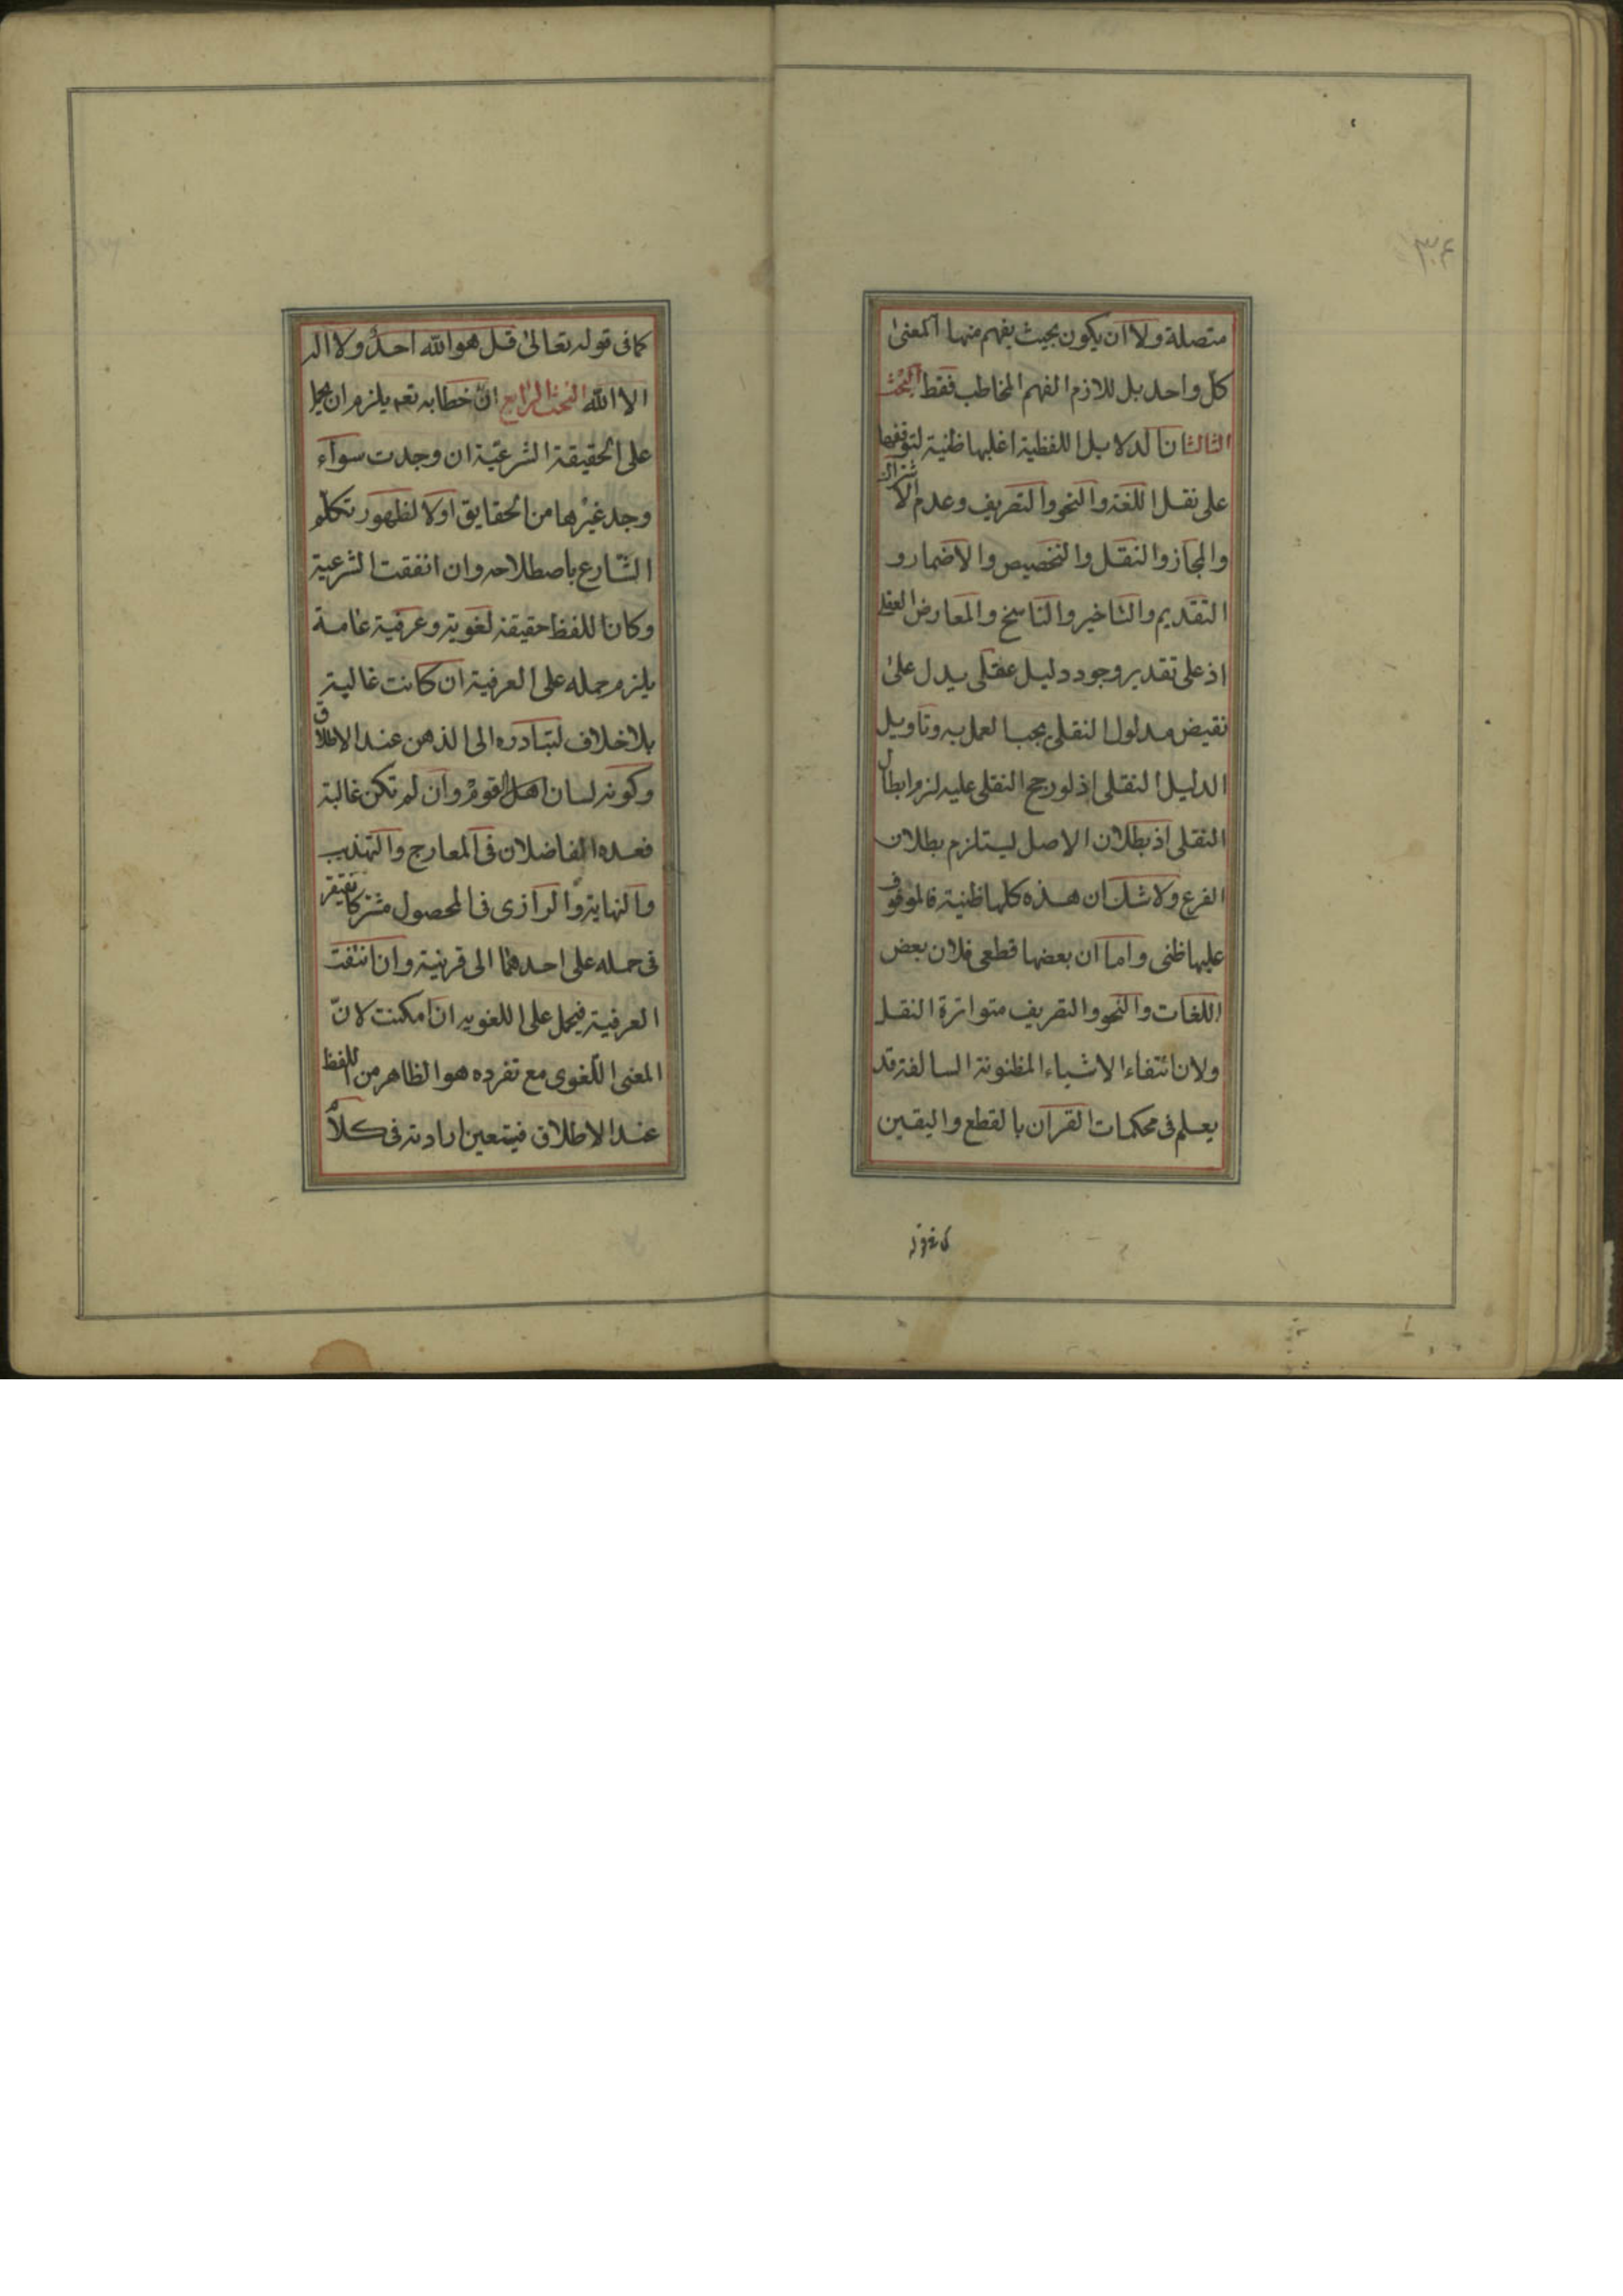 متصلة ولا ان يكون بحيث يفهم منها المعنى
كل واحد بل للازم الفهم المخاطب فقط البحث
الثالث ان الدلايل اللفظية اغلبها ظنية لتوقفها
على نقل اللغة والنحو والتصريف وعدم الاشتراك
والمجاز والنقل والتخصيص والاضمار و
التقديم والتاخير والناسخ والمعارض العقلى
اذ على تقدير وجود دليل عقلى يدل على
نقيض مدلول النقلى يجب العمل به وتاويل
الدليل النقلى اذ لو رجح النقلى عليه لزم ابطال
النقلى اذ بطلان الاصل ليستلزم بطلان
الفرع ولا شك ان هذه كلها ظنية فالموقوف
عليها ظنى واما ان بعضها قطعى فلان بعض
اللغات والنحو والتصريف متواترة النقل
ولان انتفاء الاشياء المظنونة السالفة قد
يعلم فى محكمات القران بالقطع واليقين
كما فى قوله
٣٠٤
كما فى قوله تعالى قل هو الله احد ولا اله
الا الله البحث الرابع ان خطابه تعم يلزم ان يحمل
على الحقيقة الشرعية ان وجدت سوآء
وجد غيرها من الحقايق اولا لظهور تكلم
الشارع باصطلاحه وان انتفقت الشرعية
وكان اللفظ حقيقة لغوية وعرفية عامة
يلزم حمله على العرفية ان كانت غالبة
بلا خلاف لتبادره الى الذهن عند الاطلاق
وكونه لسان اهل القوم وان لم تكن غالبة
فعده الفاضلان فى المعارج والتهذيب
والنهاية والرازى فى المحصول مشتركا يفتقر
فى حمله على احدهما الى قرينة وان انتفت
العرفية فيحمل على اللغوية ان امكنت لانّ
المعنى اللّغوى مع تفرده هو الظاهر من اللفظ
عند الاطلاق فيتعين ارادته فى كلام